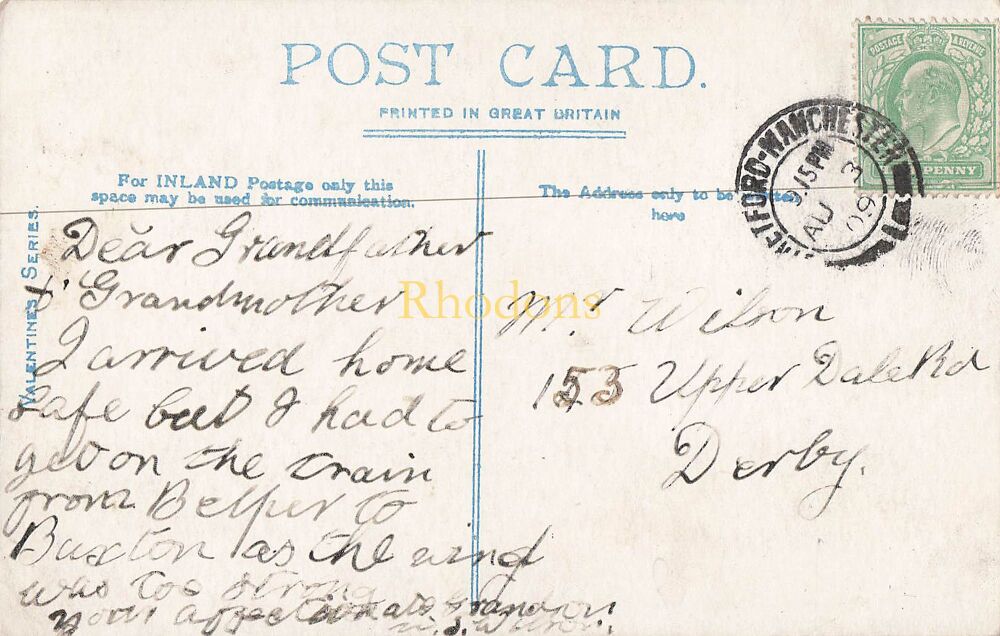 POST CARD.
PRINTED IN GREAT BRITAIN
POSTAGE & REVENUE
PENNY
MANCHESTER
9 15 PM
AU 3
09
For INLAND Postage only this
space may be used for communication.
The Address only to be
here
VALENTINES SERIES.
Dear Grandfather
& Grandmother
I arrived home
safe but I had to
get on the train
from Belper to
Buxton as the wind
was too strong
your affectionate Grandson
Mr Wilson
153 Upper Dale Rd
Derby.
Rhodons